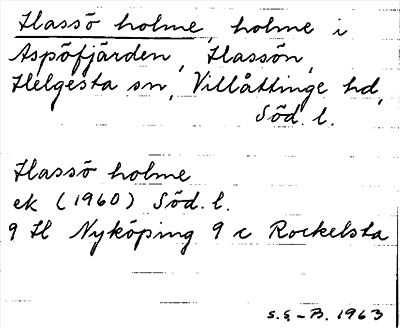 Hassö holme, holme i
Aspöfjärden, Hassön,
Helgesta sn, Villåttinge hd,
Söd. l.
Hassö holme
ek (1960) Söd. l.
9 H Nyköping 9 c Rockelsta
S.G-B. 1963